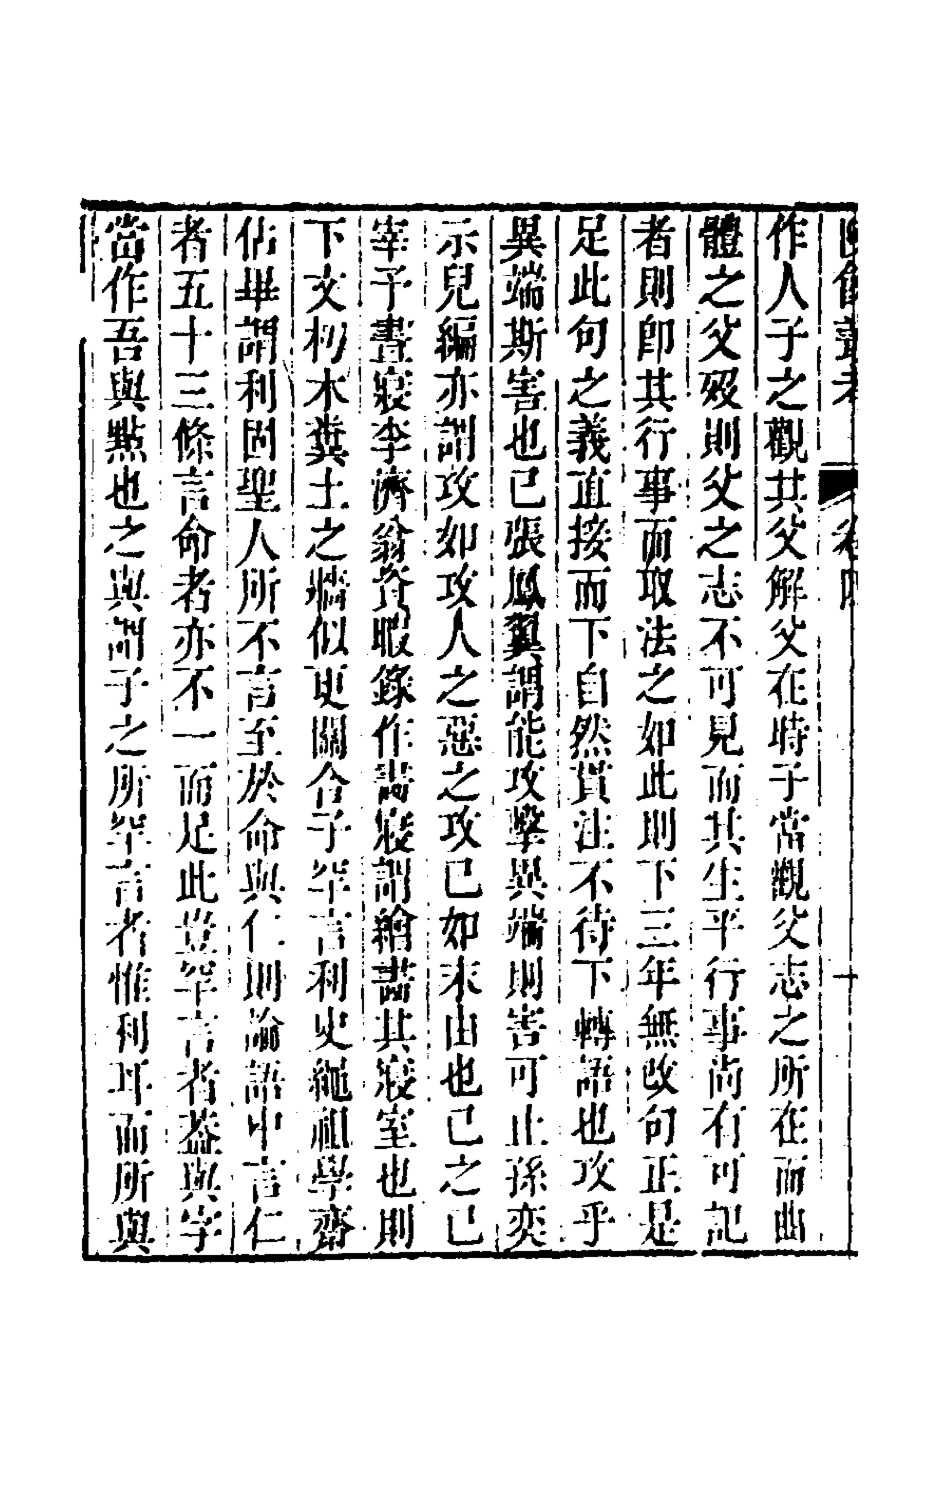 餘叢考 卷四 十
作人子之觀其父解父在時子當觀父志之所在而曲
體之父歿則父之志不可見而其生平行事尚有可記
者則即其行事而取法之如此則下三年無改句正是
足此句之義直接而下自然貫注不待下轉語也攻乎
異端斯害也已張鳳翼謂能攻擊異端則害可止孫奕
示兒編亦謂攻如攻人之惡之攻已如末由也已之已
宰予晝寢李濟翁資暇錄作畫寢謂繪畫其寢室也則
下文朽木糞土之牆似更關合子罕言利史繩祖學齋
佔畢謂利固聖人所不言至於命與仁則論語中言仁
者五十三條言命者亦不一而足此豈罕言者蓋與字
當作吾與點也之與謂子之所罕言者惟利耳而所與